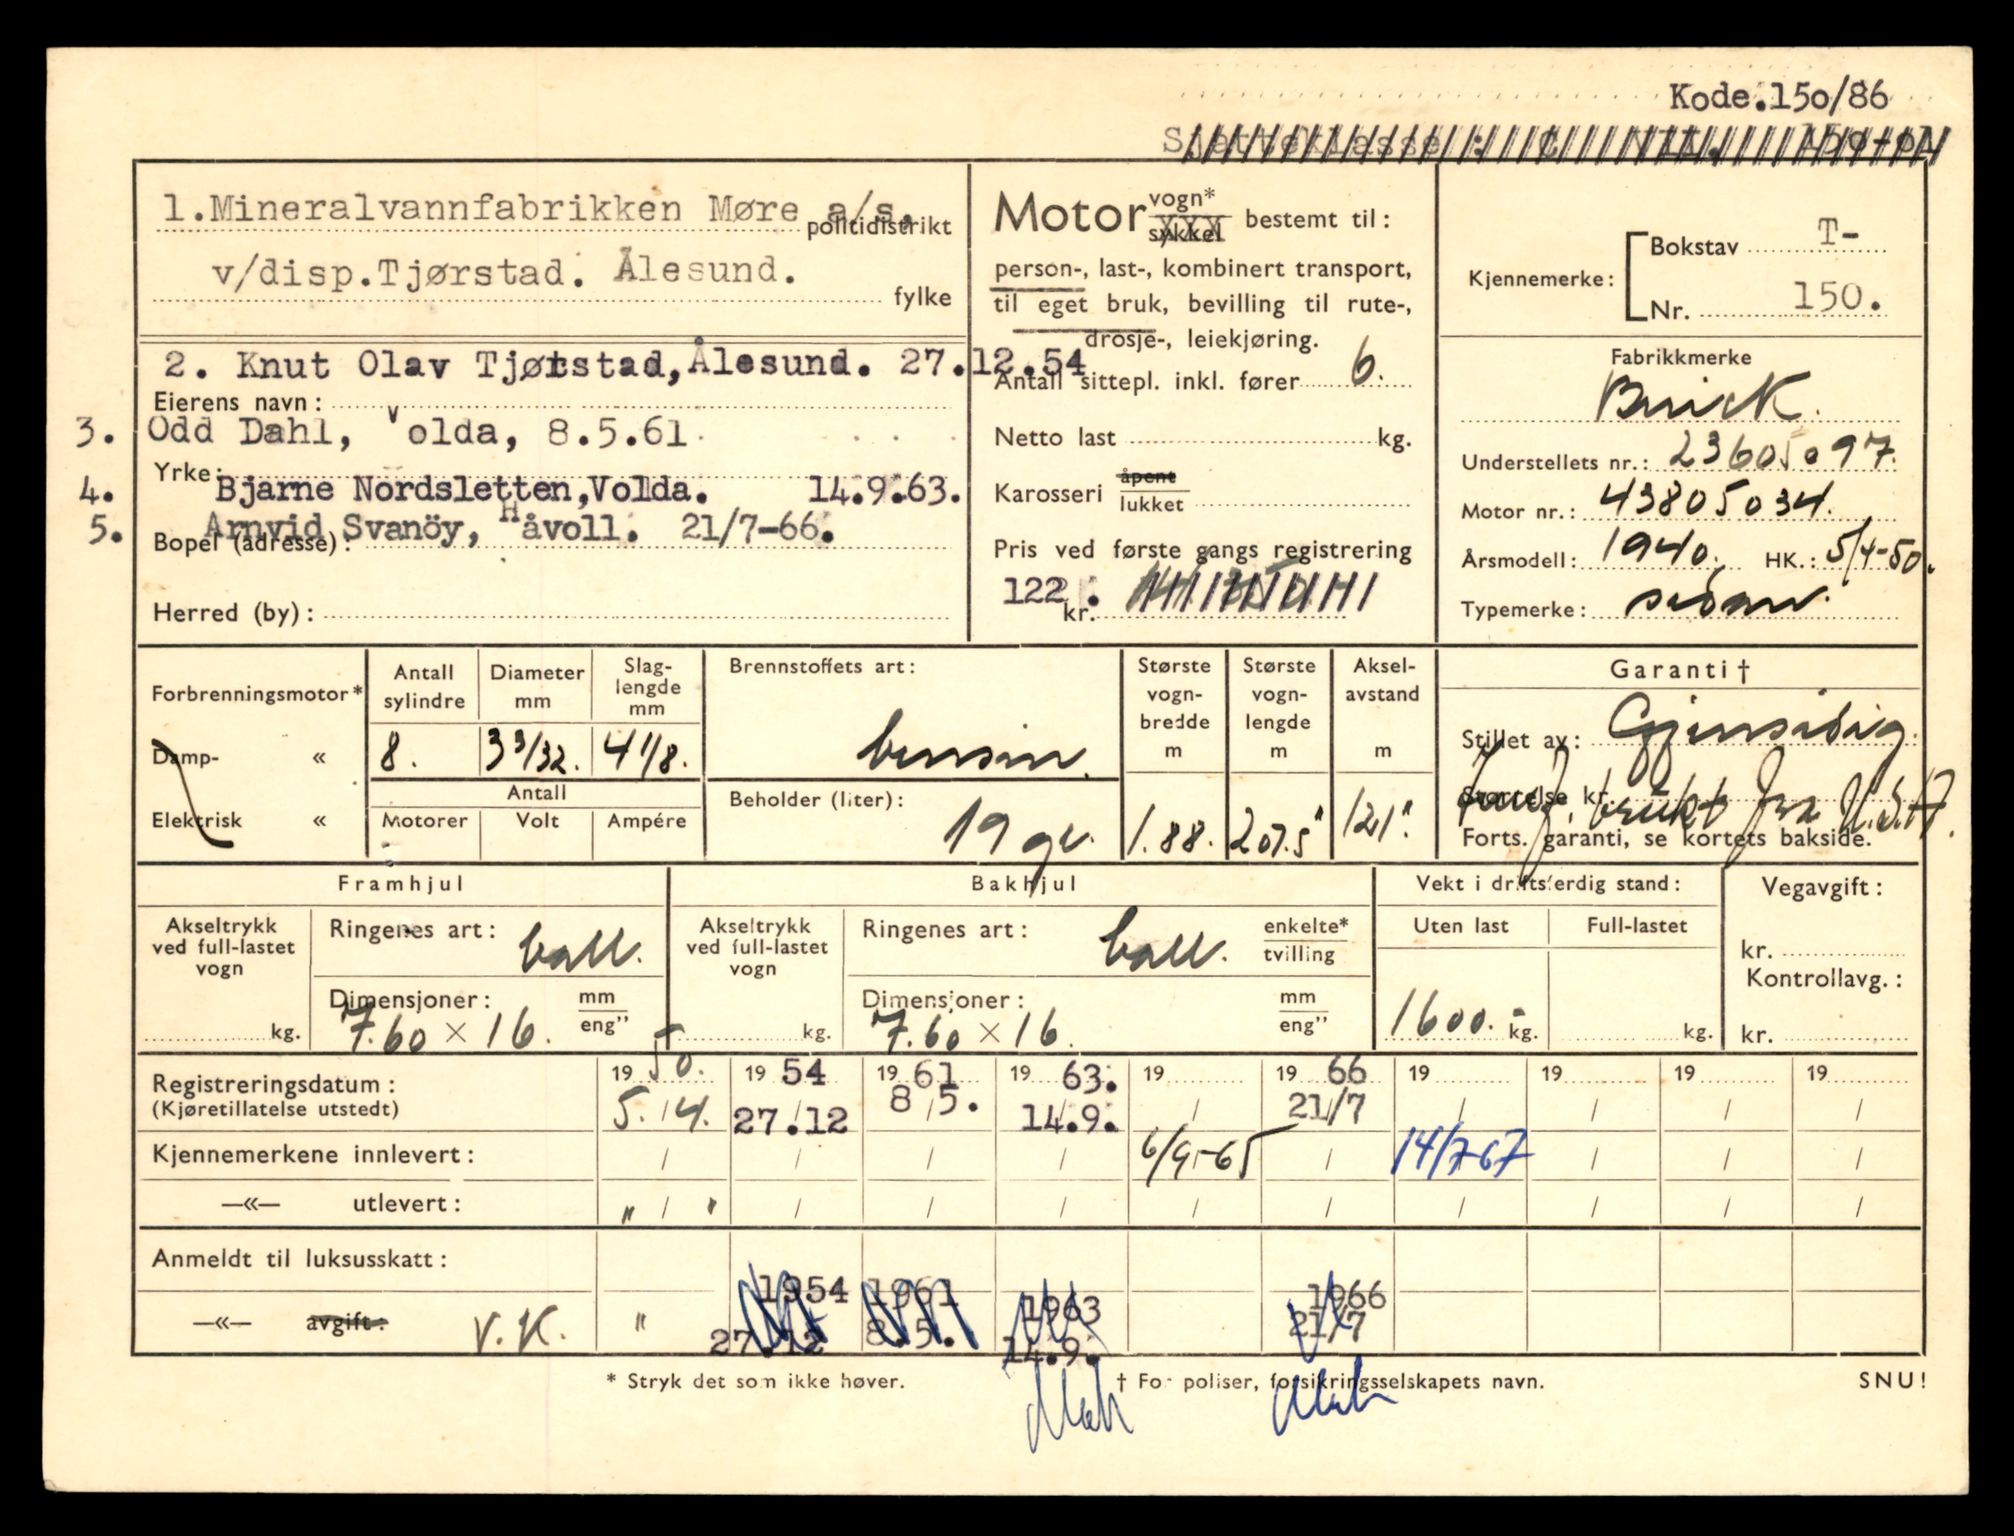 Kode.150/86
Skatteklasse: C
1.Mineralvannfabrikken Møre a/s,
politidistrikt
v/disp.Tjørstad. Ålesund.
fylke
2. Knut Olav Tjørstad, Ålesund. 27.12.54
Eierens navn:
3. Odd Dahl, Volda, 8.5.61
Yrke:
4. Bjarne Nordsletten, Volda. 14.9.63.
5. Arnvid Svanöy, Håvoll. 21/7-66.
Bopel (adresse):
Herred (by):
Motor vogn*
sykkel bestemt til:
person-, last-, kombinert transport,
til eget bruk, bevilling til rute-,
drosje-, leiekjøring.
Antall sittepl. inkl. fører 6.
Netto last kg.
Karosseri åpent
lukket
Pris ved første gangs registrering
122.
kr.
Kjennemerke: Bokstav T-
Nr. 150.
Fabrikkmerke
Buick.
Understellets nr.: 23605097.
Motor nr.: 43805034.
Årsmodell: 1940. HK.: 5/4-50.
Typemerke: sedan.
Forbrenningsmotor*
Damp- «
Elektrisk «
Antall sylindre 8.
Diameter mm 3 3/32.
Slag-lengde mm 4 1/8.
Antall
Motorer Volt Ampére
Brennstoffets art: bensin.
Beholder (liter): 19 gl.
Største vogn-bredde m 1.88.
Største vogn-lengde m 207.5"
Aksel-avstand m 121".
Garanti †
Stillet av: Gjensidig.
Størrelse kr. brukt fra U.S.A.
Forts. garanti, se kortets bakside.
Framhjul
Akseltrykk ved full-lastet vogn
kg.
Ringenes art: ball.
Dimensjoner: mm
eng"
7.60 × 16.
Bakhjul
Akseltrykk ved full-lastet vogn
kg.
Ringenes art: ball. enkelte*
tvilling
Dimensjoner: mm
eng"
7.60 × 16.
Vekt i driftsferdig stand:
Uten last Full-lastet
1600.- kg. kg.
Vegavgift:
kr.
Kontrollavg.:
kr.
Registreringsdatum: 1950. 1954 1961 1963. 19 1966 19 19 19 19
(Kjøretillatelse utstedt) 5./4. 27.12 8/5. 14.9. / 21/7 / / / /
Kjennemerkene innlevert: / / / / 6/9-65 / 14/7-67 / / /
—«— utlevert: " / " / / / / / / / / /
Anmeldt til luksusskatt:
1954 1961 1963 1966
—«— avgift: V.K. " 27.12 8.5. 14.9. 21/7
* Stryk det som ikke høver.
† For poliser, forsikringsselskapets navn.
SNU!